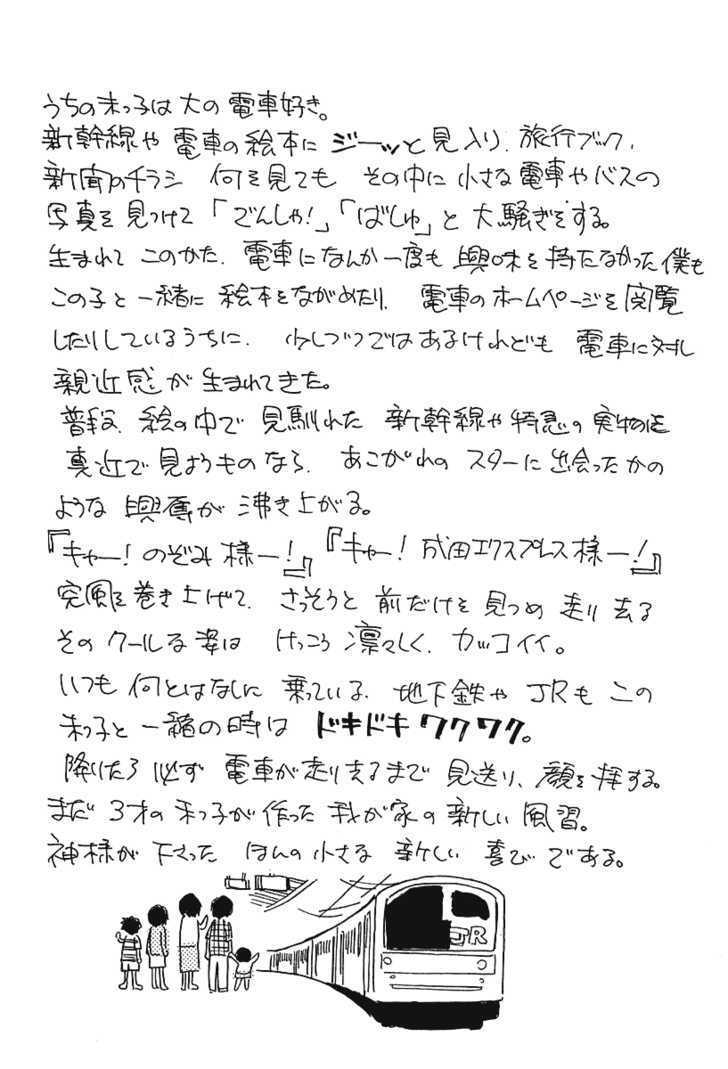 うちの末っ子は大の電車好き。
新幹線や電車の絵本にジーッと見入り、旅行ブック、
新聞のチラシ 何を見ても その中に小さな電車やバスの
写真を見つけて「でんしゃ!」「ばしゅ」と大騒ぎをする。
生まれてこのかた、電車になんか一度も興味を持たなかった僕も
この子と一緒に絵本をながめたり、電車のホームページを閲覧
したりしているうちに、少しづつではあるけれども電車に対し
親近感が生まれてきた。
普段、絵の中で見馴れた新幹線や特急の実物を
真近で見ようものなら、あこがれのスターに出会ったかの
ような興奮が沸き上がる。
『キャー!のぞみ様ー!』『キャー!成田エクスプレス様ー!』
突風を巻き上げて、さっそうと前だけを見つめ走り去る
そのクールな姿は けっこう凛々しく、カッコイイ。
いつも何とはなしに乗っている、地下鉄やJRもこの
末っ子と一緒の時はドキドキワクワク。
降りたら必ず電車が走り去るまで見送り、顔を拝する。
まだ3才の末っ子が作った我が家の新しい風習。
神様が下さったほんの小さな新しい喜びである。
JR